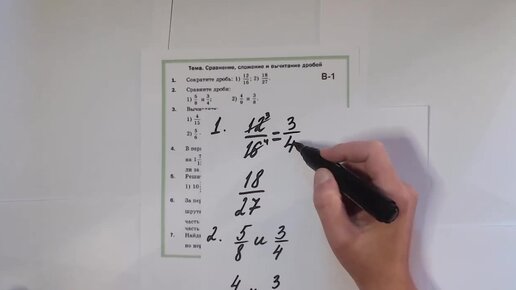 Тема. Сравнение, сложение и вычитание дробей
В-1
1. Сократите дробь: 1) 12/16; 2) 18/27.
2. Сравните дроби:
1) 5/8 и 3/4; 2) 4/9 и 3/8.
3.
1) 4/15
2) 5/6
4. В пер
на 1
ли за
5. Реши
1) 10
6. За пе
шрут
часть
часть
7. Найд
по не
1. 12³/16⁴ = 3/4
18/27
2. 5/8 и 3/4
4 и 3